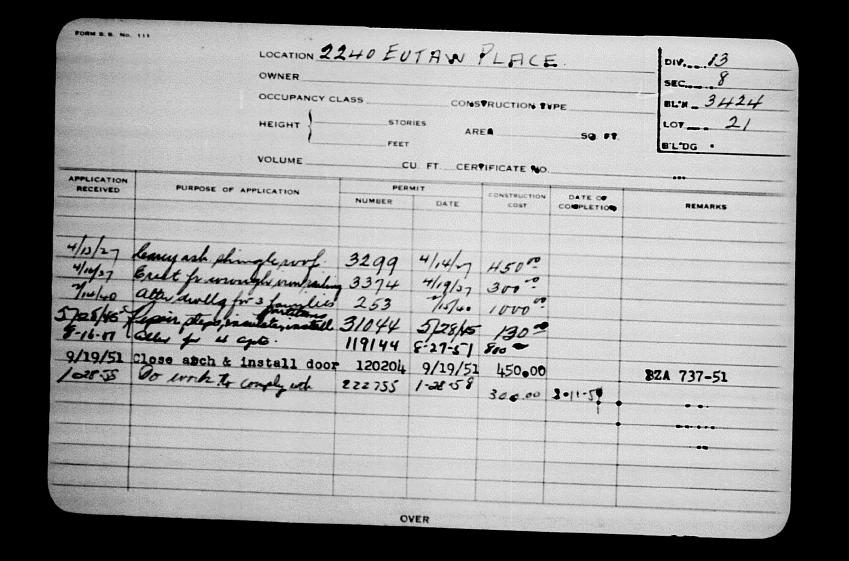 FORM B.B. No. 111
LOCATION 2240 EUTAW PLACE.
DIV. 13
OWNER
SEC. 8
OCCUPANCY CLASS CONSTRUCTION TYPE
BL'K 3424
HEIGHT STORIES AREA SQ. FT.
LOT 21
FEET
B'L'DG
VOLUME CU. FT. CERTIFICATE NO.
APPLICATION RECEIVED PURPOSE OF APPLICATION PERMIT NUMBER DATE CONSTRUCTION COST DATE OF COMPLETION REMARKS
4/13/27 shingle roof 3299 4/14/27 450.00
Erect wrought iron railing 3374 4/19/37 300.00
2/14/40 Alter dwellg for 3 families 253 2/15/40 1000.00
partitions
5/28/45 Repair steps, install 31044 5/28/45 130.00
8-16- for apts. 119144 8-27-51 800
9/19/51 Close arch & install door 120204 9/19/51 450.00 BZA 737-51
To work to comply with 222755 1-28-58 300.00
OVER